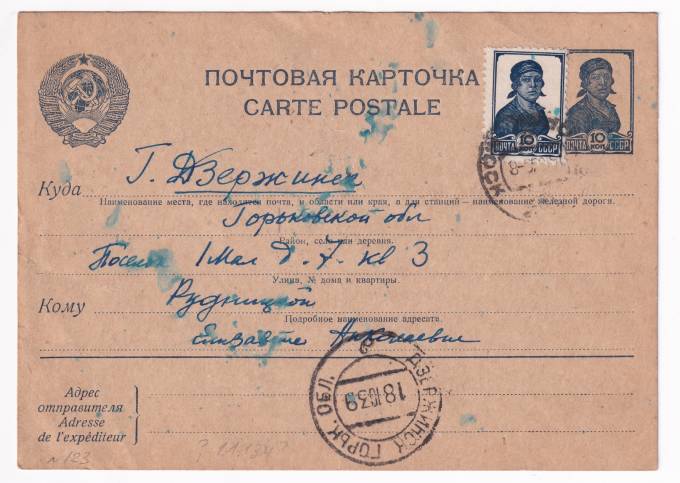 ПОЧТОВАЯ КАРТОЧКА
CARTE POSTALE
ПОЧТА 10 КОП СССР
ПОЧТА 10 КОП. СССР
Куда Г. Дзержинск
Наименование места, где находится почта, и области или края, а для станций — наименование железной дороги.
Горьковской обл
Район, село или деревня.
1 Мая д. 7. кв 3
Улица, № дома и квартиры.
Кому Рудницкой
Подробное наименование адресата.
Елизавете
ДЗЕРЖИНСК ГОРЬК. ОБЛ.
18 10 39
Адрес
отправителя
Adresse
de l'expéditeur
№ 123